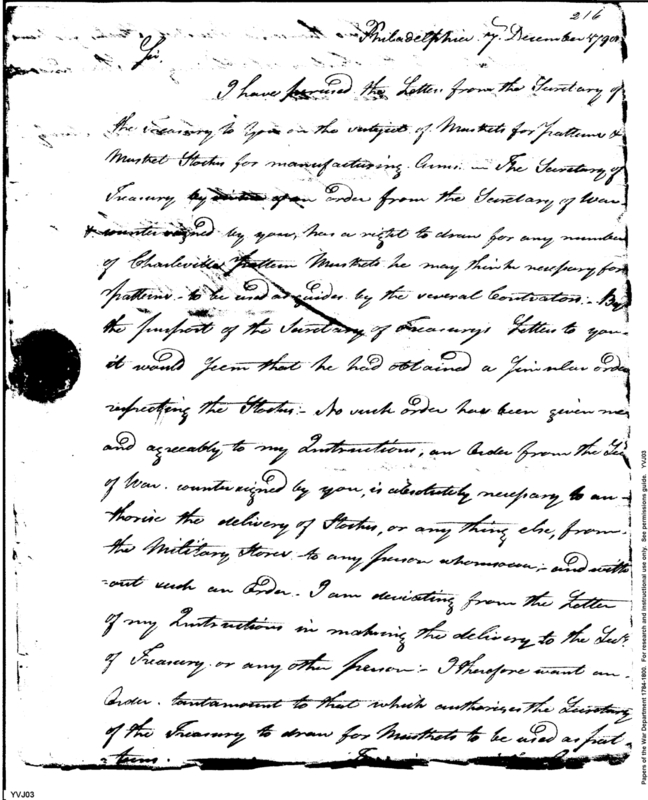 216
Philadelphia 7. December 1798
Sir,
I have perused the Letter from the Secretary of
the Treasury to You on the subject of Muskets for pattern &
Musket Stocks for manufacturing Arms. – The Secretary of
Treasury by virtue of an order from the Secretary of War
countersigned by you, has a right to draw for any number
of Charleville pattern Muskets he may think necessary for
patterns – to be used as guides by the several Contractors. – By
the purport of the Secretary of Treasurys Letter to you
it would seem that he had obtained a similar order
respecting the Stocks: – No such order has been given me
and agreeably to my Instructions, an Order from the Secy
of War. countersigned by you, is absolutely necessary to au-
thorise the delivery of Stocks, or any thing else, from
the Military Stores to any person whomsoever; – and with-
-out such an Order. I am deviating from the Letter
of my Instructions in making the delivery to the Secy
of Treasury or any other person: – I therefore want an
Order. tantamount to that which authorises the Secretary
of the Treasury to draw for Muskets to be used as pat-
-terns.
YVJ03
Papers of the War Department 1784-1800. For research and instructional use only. See permissions guide. YVJ03